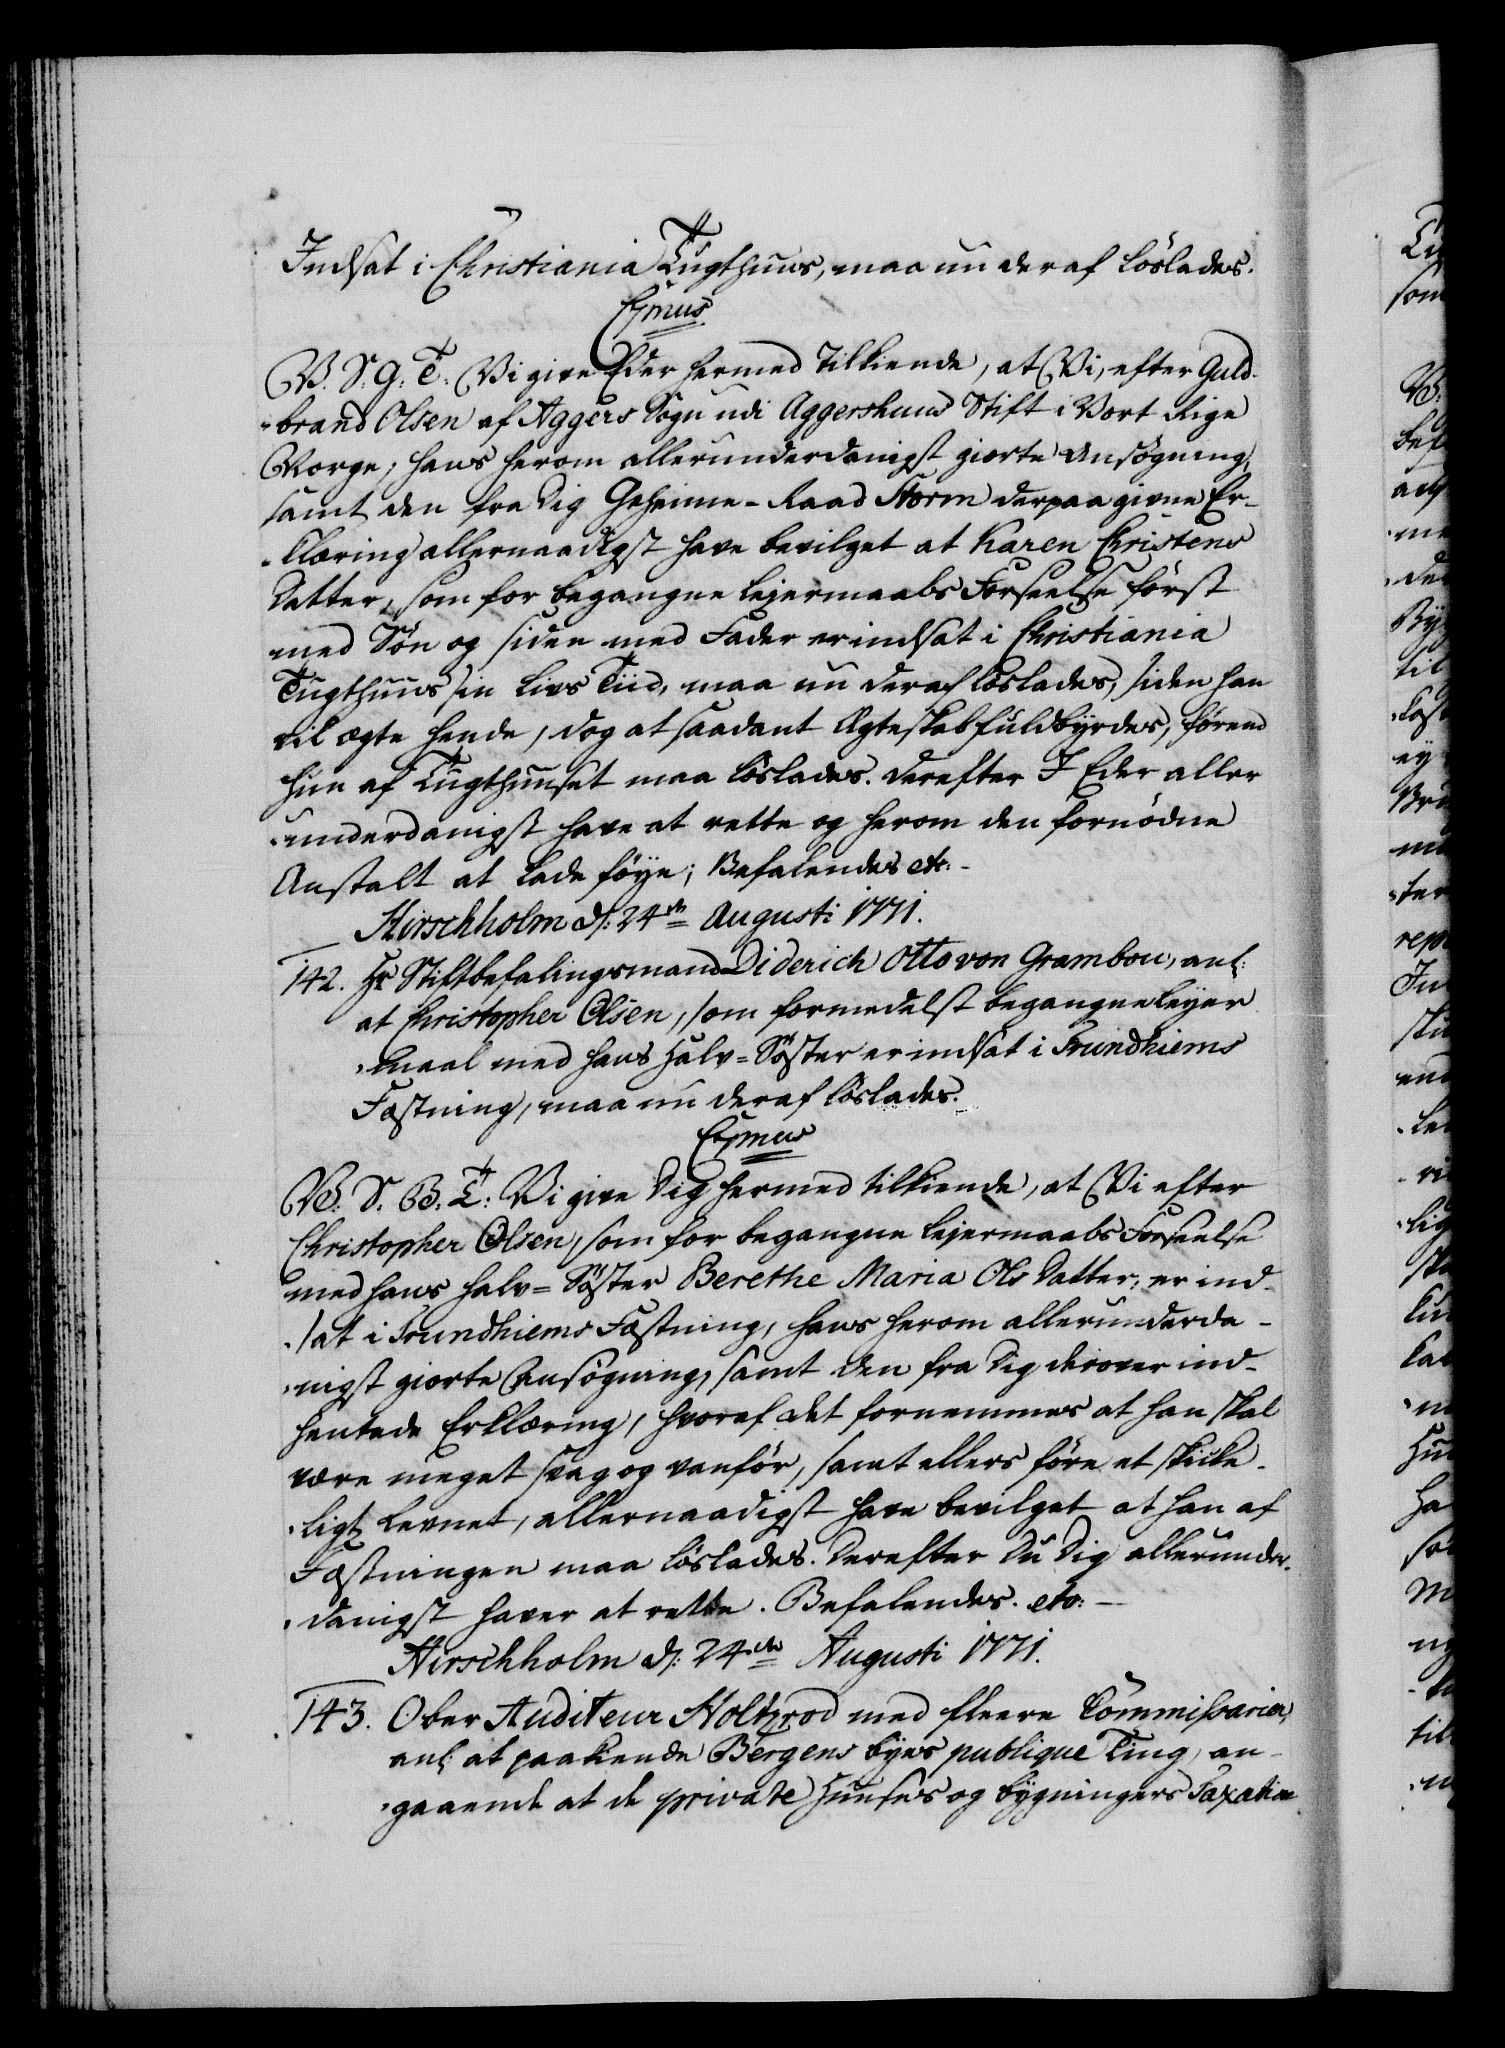 Indsat i Christiania Tugthuus, maa nu deraf löslades.
C7mus
V. S. G. T. Vi give Eder hermed tilkiende, at Vi, efter Guld-
brand Olsen af Aggers Sogn udi Aggershuus Stift i Vort Rige
Norge, hans herom allerunderdanigst giorte Ansögning,
samt den fra Dig Geheime-Raad Storm derpaa givne Er-
klæring allernaadigst have bevilget at Karen Christens
Datter, som for begangne Lejermaals Forseelse först
med Sön og siden med Fader er indsat i Christiania
Tugthuus sin Livs Tiid, maa nu deraf löslades, siden han
vil ægte hende, dog at saadant Ægteskab fuldbyrdes, förend
hun af Tugthuuset maa löslades. Derefter I Eder aller
underdanigst have at rette og herom den fornödne
Anstalt at lade föye; Befalendes etc:
Hirschholm d: 24de Augusti 1771.
142. Hr Stiftbefalingsmand Diderich Otto von Grambow, anl:
at Christopher Olsen, som formedelst begangne Leyer
maal med hans Halv-Söster er indsat i Trundhiems
Fæstning, maa nu deraf löslades.
C7mus
V. S. G. T: Vi give Dig hermed tilkiende, at Vi efter
Christopher Olsen, som for begangne Lejermaals Forseelse
med hans halv-Söster Berethe Maria Ols Datter, er ind-
sat i Trundhiems Fæstning, hans herom allerunderda-
nigst giorte Ansögning, samt den fra Dig derover ind-
hentede Erklæring, hvoraf det fornemmes at han skal
være meget svag og vanför, samt ellers före et skikke-
ligt Levnet, allernaadigst have bevilget at han af
Fæstningen maa löslades. Derefter Du Dig allerunder-
danigst haver at rette. Befalendes. etc:
Hirschholm d: 24de Augusti 1771.
143. Ober Auditeur Holtzrod med fleere Commissarier,
anl: at paakiende Bergens byes publique Ting, an-
gaaende at de private Huuses og bygningers Taxation